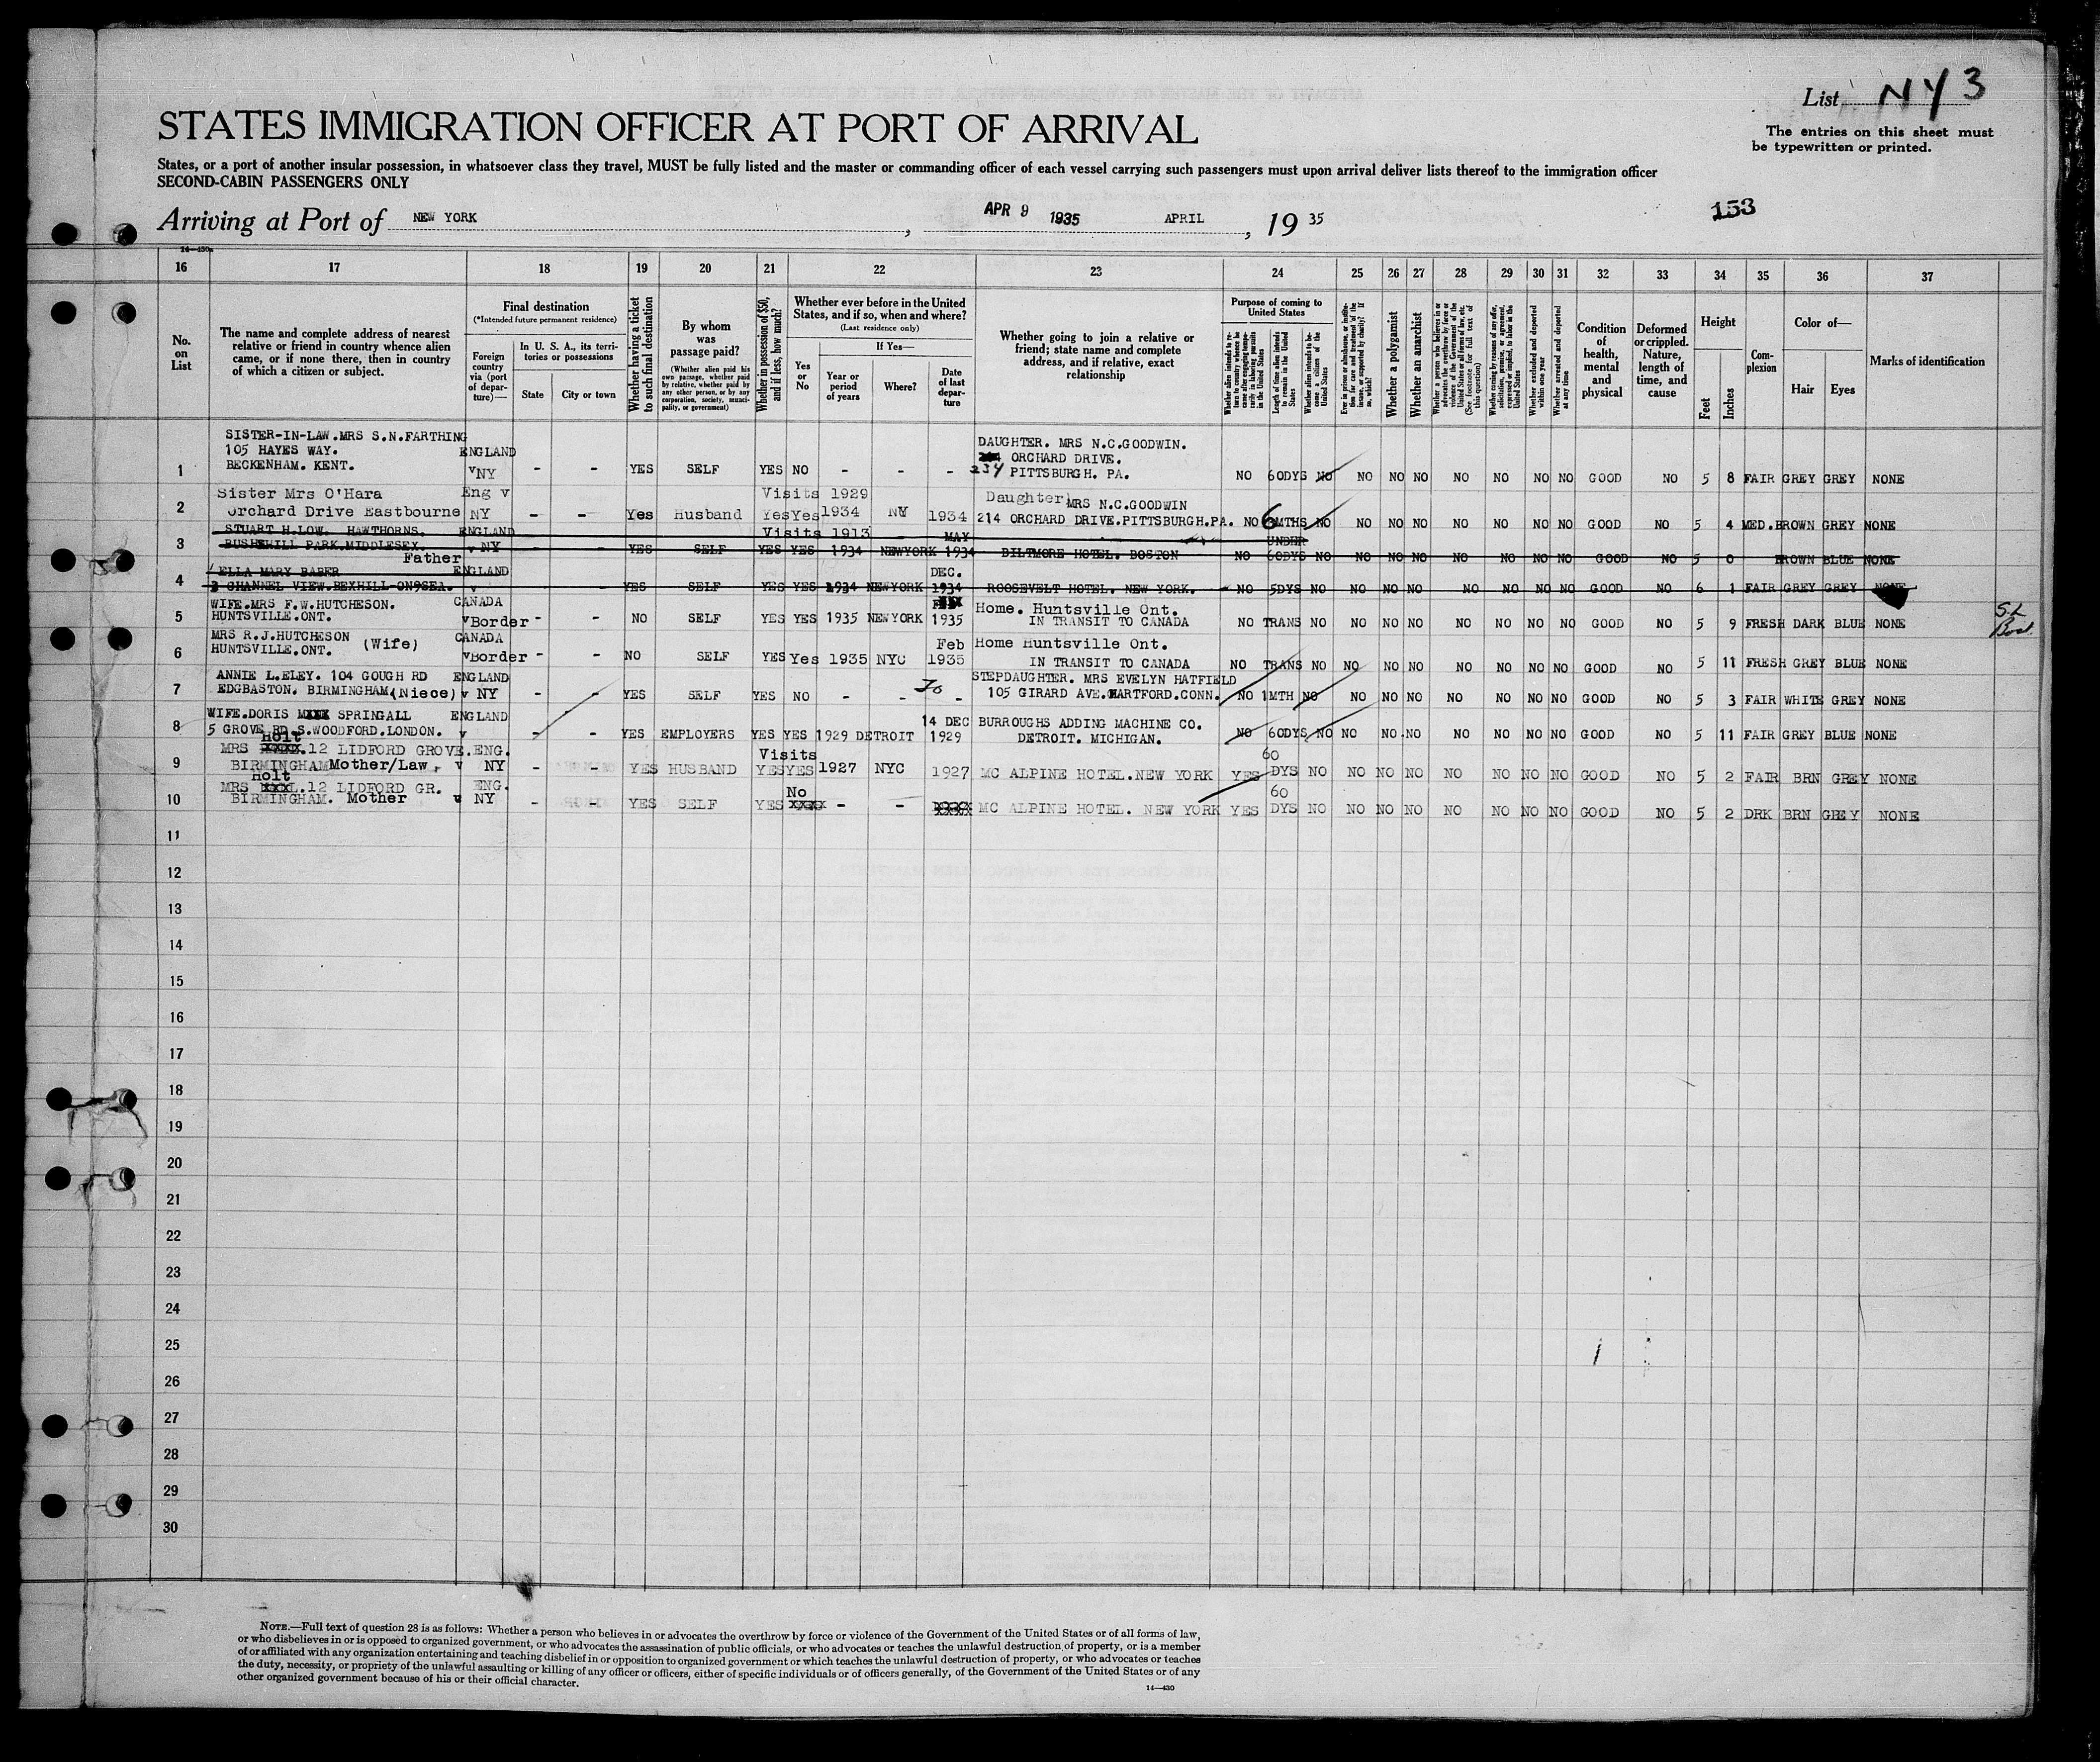 List NY 3
STATES IMMIGRATION OFFICER AT PORT OF ARRIVAL
The entries on this sheet must
be typewritten or printed.
States, or a port of another insular possession, in whatsoever class they travel, MUST be fully listed and the master or commanding officer of each vessel carrying such passengers must upon arrival deliver lists thereof to the immigration officer
SECOND-CABIN PASSENGERS ONLY
Arriving at Port of NEW YORK, APR 9 1935 APRIL, 19 35
153
14-430a
16 17 18 19 20 21 22 23 24 25 26 27 28 29 30 31 32 33 34 35 36 37
No. on List
The name and complete address of nearest relative or friend in country whence alien came, or if none there, then in country of which a citizen or subject.
Final destination
(*Intended future permanent residence)
Foreign country via (port of departure)—
In U. S. A., its territories or possessions
State
City or town
Whether having a ticket to such final destination
By whom was passage paid?
(Whether alien paid his own passage, whether paid by relative, whether paid by any other person, or by any corporation, society, municipality, or government)
Whether in possession of $50, and if less, how much?
Whether ever before in the United States, and if so, when and where?
(Last residence only)
Yes or No
If Yes—
Year or period of years
Where?
Date of last departure
Whether going to join a relative or friend; state name and complete address, and if relative, exact relationship
Purpose of coming to United States
Length of time alien intends to remain in the United States
Whether alien intends to become a citizen of the United States
Whether a polygamist
Whether an anarchist
Whether excluded and deported within one year
Whether arrested and deported at any time
Condition of health, mental and physical
Deformed or crippled. Nature, length of time, and cause
Height
Feet
Inches
Complexion
Color of—
Hair
Eyes
Marks of identification
SISTER-IN-LAW.MRS S.N.FARTHING
105 HAYES WAY. ENGLAND DAUGHTER. MRS N.C.GOODWIN.
BECKENHAM. KENT. ORCHARD DRIVE.
1 vNY - - YES SELF YES NO - - - 234 PITTSBURGH. PA. NO 60DYS NO NO NO NO NO NO NO NO GOOD NO 5 8 FAIR GREY GREY NONE
Sister Mrs O'Hara Eng v Visits 1929 Daughter MRS N.C.GOODWIN
2 Orchard Drive Eastbourne NY - - Yes Husband Yes Yes 1934 NY 1934 214 ORCHARD DRIVE.PITTSBURGH.PA. NO 6 MTHS NO NO NO NO NO NO NO NO GOOD NO 5 4 MED. BROWN GREY NONE
STUART H.LOW. HAWTHORNS. ENGLAND Visits 1913 MAY UNDER
3 BUSHHILL PARK.MIDDLESEX. v NY YES SELF YES YES 1934 NEWYORK 1934 BILTMORE HOTEL. BOSTON NO 60DYS NO NO NO NO NO NO NO NO GOOD NO 5 0 BROWN BLUE NONE
Father
ELLA MARY BABER ENGLAND DEC.
4 3 CHANNEL VIEW.BEXHILL-ON-SEA. v YES SELF YES YES 1934 NEWYORK 1934 ROOSEVELT HOTEL. NEW YORK. NO 5DYS NO NO NO NO NO NO NO NO GOOD NO 6 1 FAIR GREY GREY NONE
WIFE.MRS F.W.HUTCHESON. CANADA Home. Huntsville Ont.
5 HUNTSVILLE.ONT. vBorder - - NO SELF YES YES 1935 NEWYORK 1935 IN TRANSIT TO CANADA NO TRANS NO NO NO NO NO NO NO NO GOOD NO 5 9 FRESH DARK BLUE NONE
MRS R.J.HUTCHESON (Wife) CANADA Feb Home Huntsville Ont.
6 HUNTSVILLE.ONT. vBorder - - NO SELF YES Yes 1935 NYC 1935 IN TRANSIT TO CANADA NO TRANS NO NO NO NO NO NO NO NO GOOD NO 5 11 FRESH GREY BLUE NONE
ANNIE L.ELEY. 104 GOUGH RD ENGLAND STEPDAUGHTER. MRS EVELYN HATFIELD
7 EDGBASTON. BIRMINGHAM.(Niece) v NY - - YES SELF YES NO - - - 105 GIRARD AVE.HARTFORD.CONN. NO 1MTH NO NO NO NO NO NO NO NO GOOD NO 5 3 FAIR WHITE GREY NONE
WIFE.DORIS SPRINGALL ENGLAND 14 DEC BURROUGHS ADDING MACHINE CO.
8 5 GROVE RD.S.WOODFORD.LONDON. v - - YES EMPLOYERS YES YES 1929 DETROIT 1929 DETROIT. MICHIGAN. NO 60DYS NO NO NO NO NO NO NO NO GOOD NO 5 11 FAIR GREY BLUE NONE
MRS Holt XXXX.12 LIDFORD GROVE.ENG. Visits 60
9 BIRMINGHAM Mother/Law, v NY - - YES HUSBAND YES YES 1927 NYC 1927 MC ALPINE HOTEL.NEW YORK YES DYS NO NO NO NO NO NO NO NO GOOD NO 5 2 FAIR BRN GREY NONE
MRS Holt.12 LIDFORD GR. ENG. No 60
10 BIRMINGHAM. Mother v NY - - YES SELF YES XXXX - - XXXX MC ALPINE HOTEL. NEW YORK YES DYS NO NO NO NO NO NO NO NO GOOD NO 5 2 DRK BRN GREY NONE
11
12
13
14
15
16
17
18
19
20
21
22
23
24
25
26
27
28
29
30
NOTE.—Full text of question 28 is as follows: Whether a person who believes in or advocates the overthrow by force or violence of the Government of the United States or of all forms of law,
or who disbelieves in or is opposed to organized government, or who advocates the assassination of public officials, or who advocates or teaches the unlawful destruction of property, or is a member
of or affiliated with any organization entertaining and teaching disbelief in or opposition to organized government or which teaches the unlawful destruction of property, or who advocates or teaches
the duty, necessity, or propriety of the unlawful assaulting or killing of any officer or officers, either of specific individuals or of officers generally, of the Government of the United States or of any
other organized government because of his or their official character.
14-430